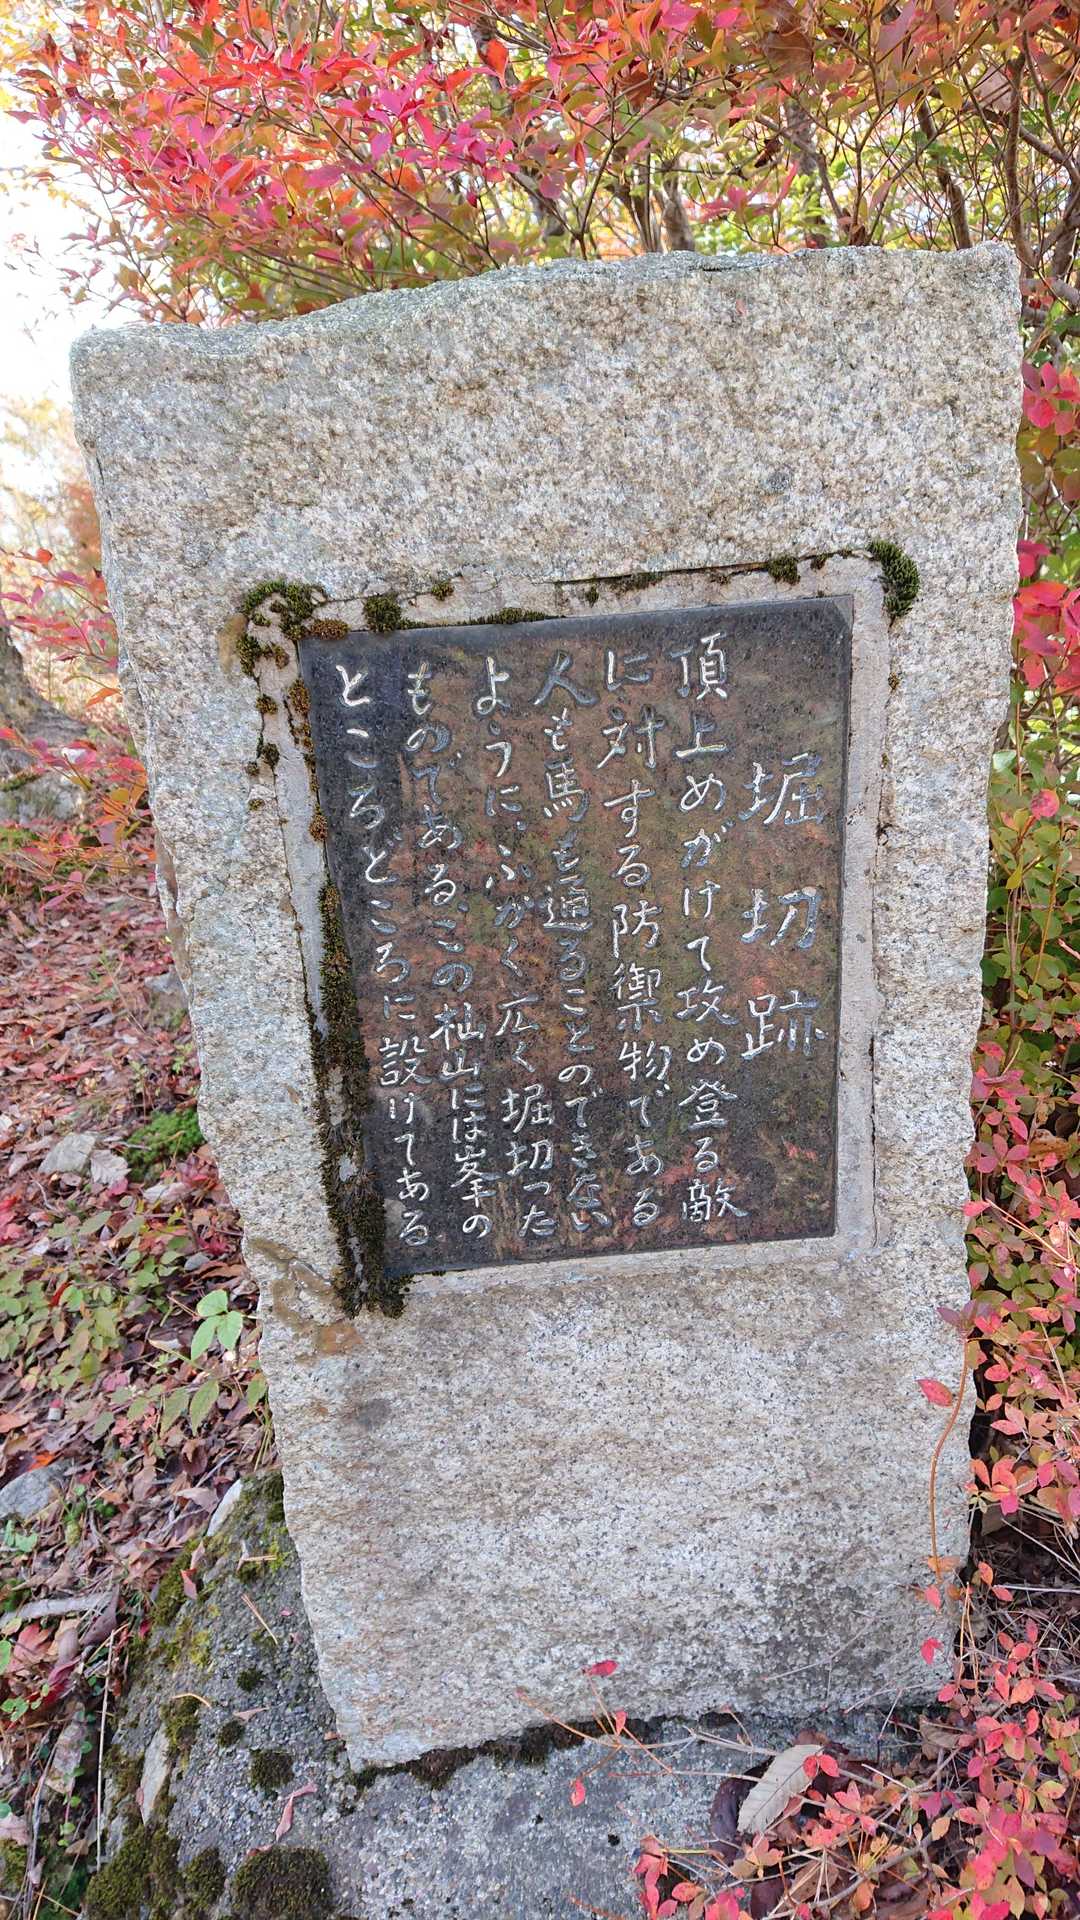 堀切跡
頂上めがけて攻め登る敵
に対する防禦物である
人も馬も通ることのできない
ように、ふかく広く堀切った
ものである、この杣山には峯の
ところどころに設けてある